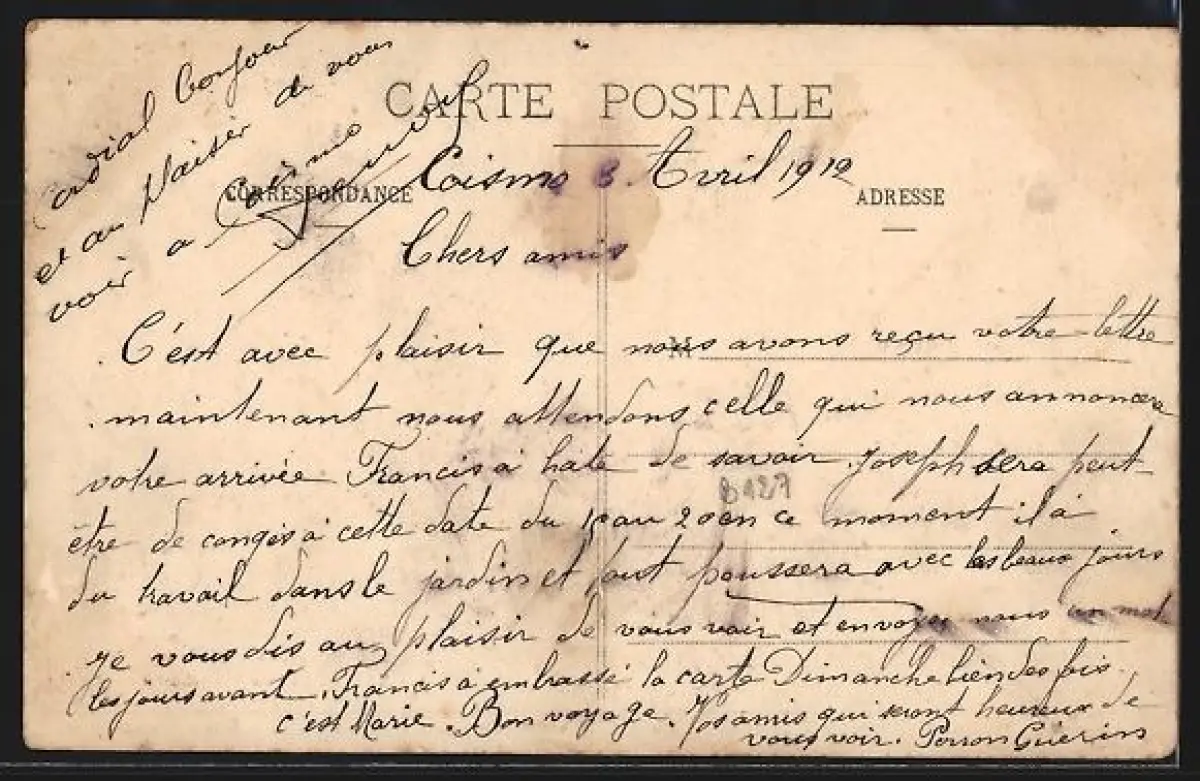 Cordial bonjour
et au plaisir de vous
voir a Coismo
CARTE POSTALE
CORRESPONDANCE
ADRESSE
Coismo 8 Avril 1912
Chers amis
C'est avec plaisir que nous avons reçu votre lettre
maintenant nous attendons celle qui nous annoncera
votre arrivée Francis à hâte de savoir. Joseph sera peut
être de congés à cette date du au 20 en ce moment il à
du travail dans le jardin et tout poussera avec les beaux jours
Je vous dis au plaisir de vous voir et envoyez nous un mot
les jours avant. Francis à embrassé la carte Dimanche bien des fois
c'est Marie. Bon voyage. Vos amis qui seront heureux de
vous voir. Perron Guérin
B127